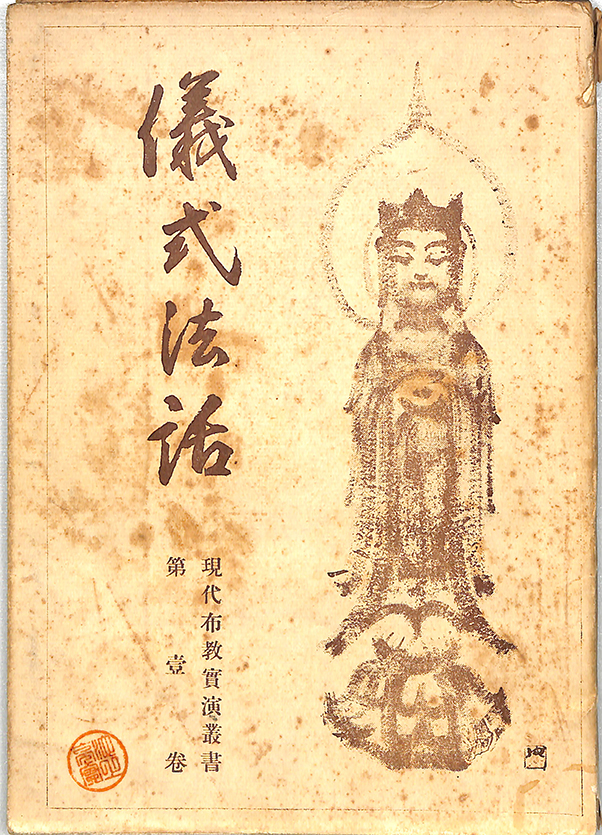 儀式法話
現代布教實演叢書
第壹卷